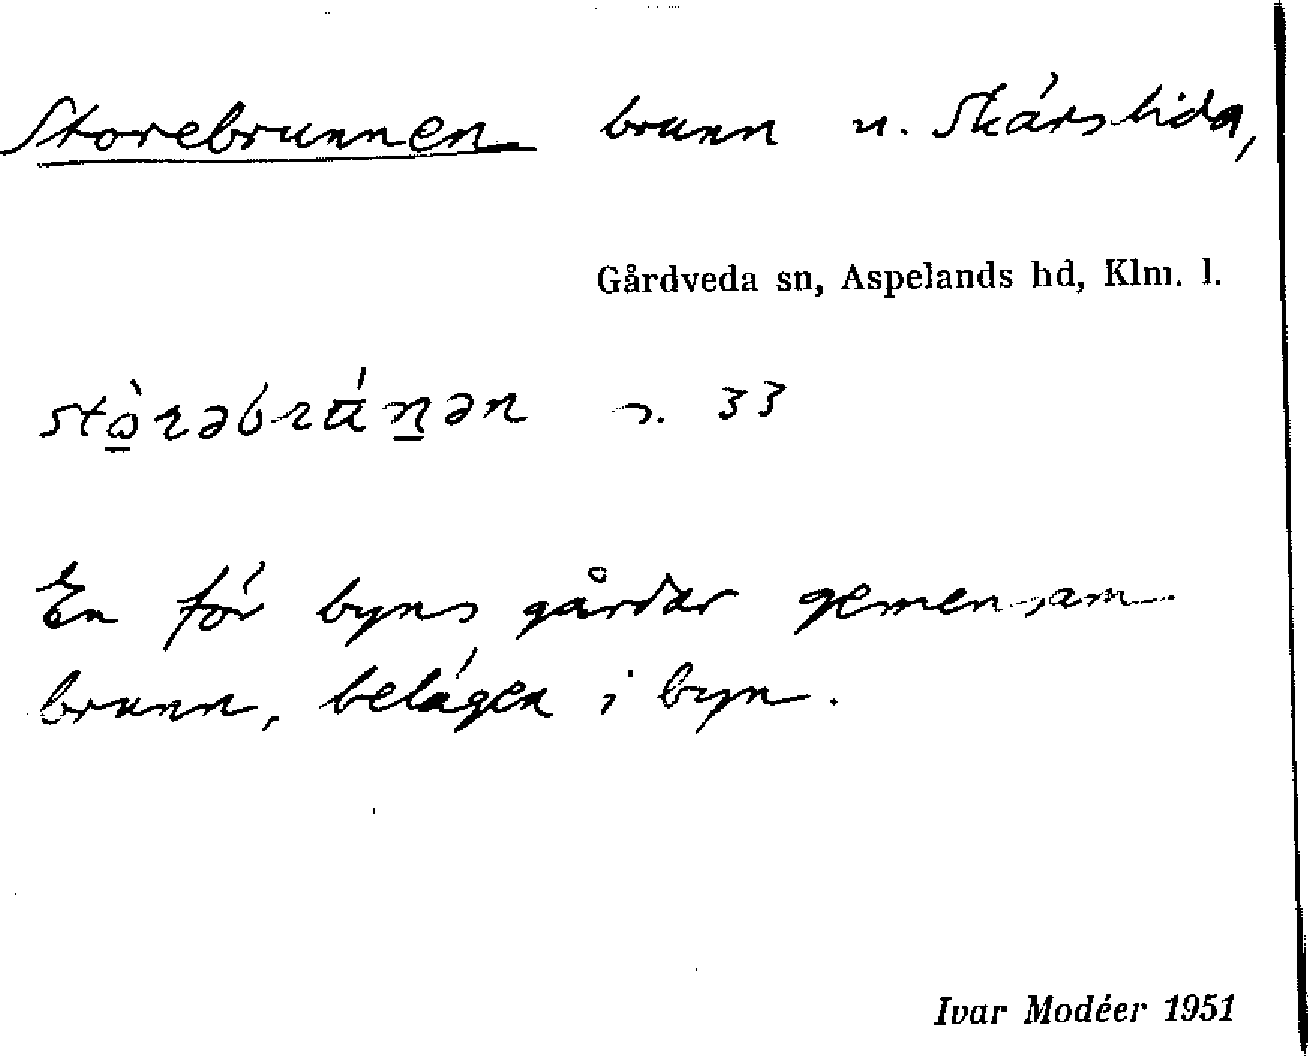 Storebrunnen brunn u. Skárslida,
Gårdveda sn, Aspelands hd, Klm. l.
En för byns gårdar gemensam
brunn, belägen i byn.
Ivar Modéer 1951